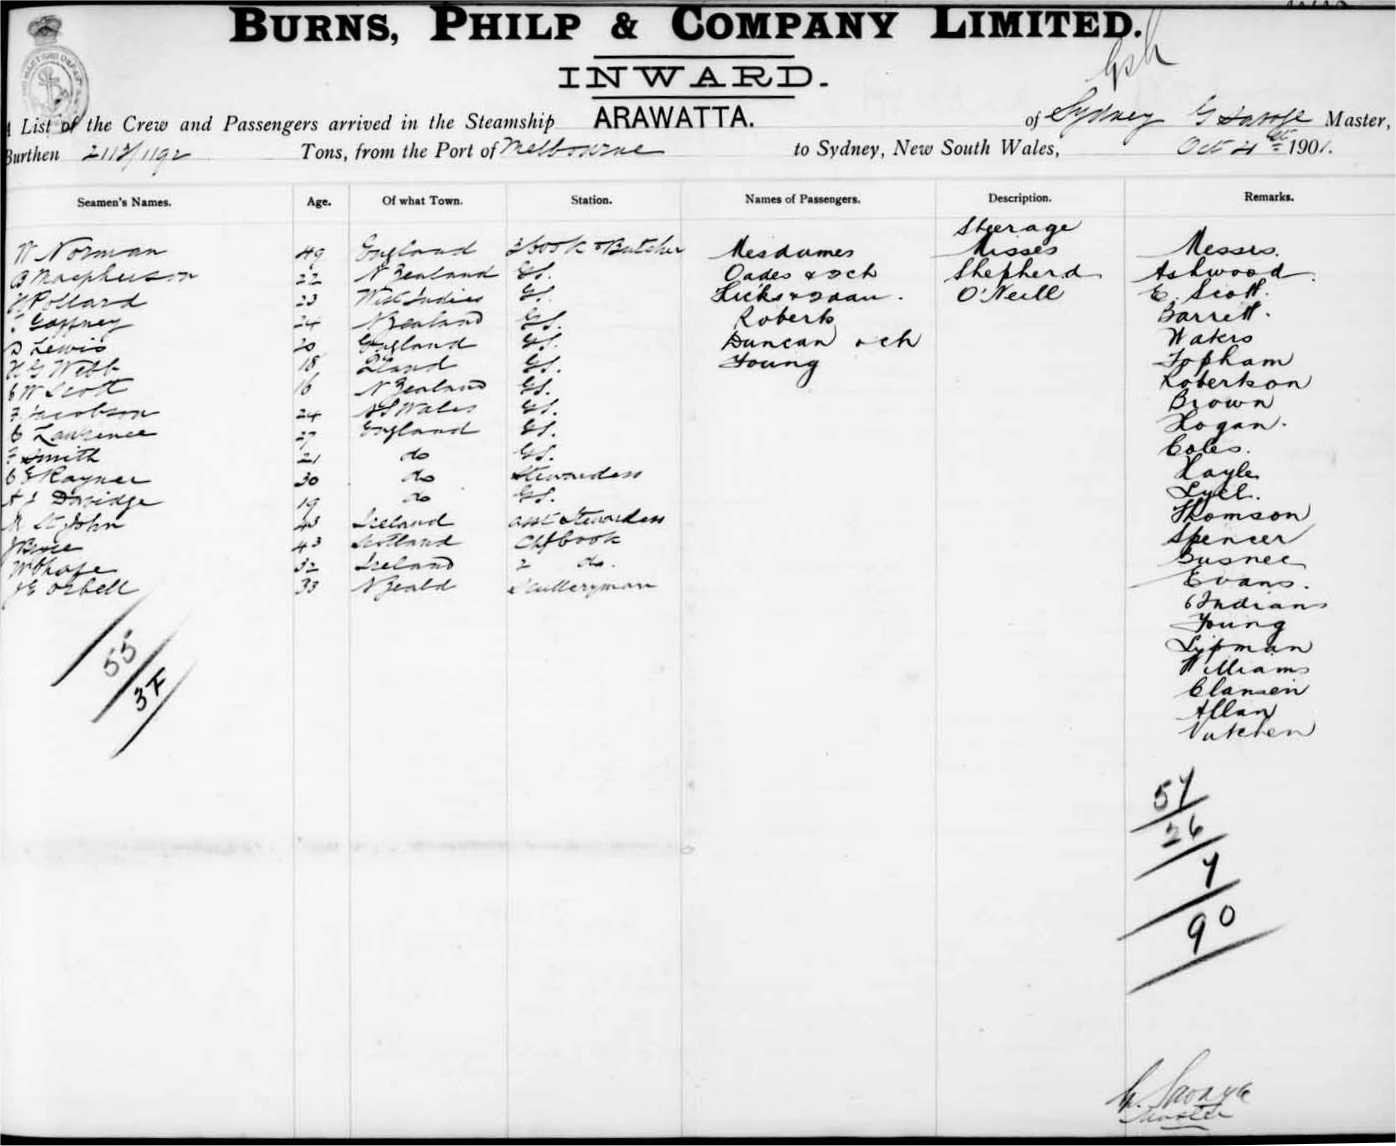 BURNS, PHILP & COMPANY LIMITED.
INWARD.
A List of the Crew and Passengers arrived in the Steamship ARAWATTA. of Sydney G Savage Master,
Burthen 2113/1192 Tons, from the Port of Melbourne to Sydney, New South Wales, Oct 1901.
Seamen's Names. Age. Of what Town. Station. Names of Passengers. Description. Remarks.
Steerage
W Norman 49 England 3 Cook & Butcher Mesdames Misses Messrs.
B Macpherson 22 N Zealand GS. Oades & ch Shepherd Ashwood
Pollard 23 West Indies GS. Hicks & O'Neill E. Scott.
Gaffney 24 N Zealand GS. Roberts Barrett.
Lewis 20 England GS. Duncan & ch Waters
H G Webb 18 GS. Young Topham
C W Scott 16 N Zealand GS. Robertson
F Jacobson 24 N S Wales GS. Brown
C Lawrence 27 England GS. Hogan.
F Smith 21 do GS. Coles.
C E Rayner 30 do Stewardess Kayle
A J Davidge 19 do GS. Lyell.
M St John 43 Ireland asst Stewardess Thomson
43 Scotland Chf Cook Spencer
32 Ireland 2 do.
J E Orbell 33 N Zeald Sculleryman Evans.
6 Indians
Young
Lipman
Williams
Clansen
Allan
55
3F
57
26
7
90
G. Savage
Master